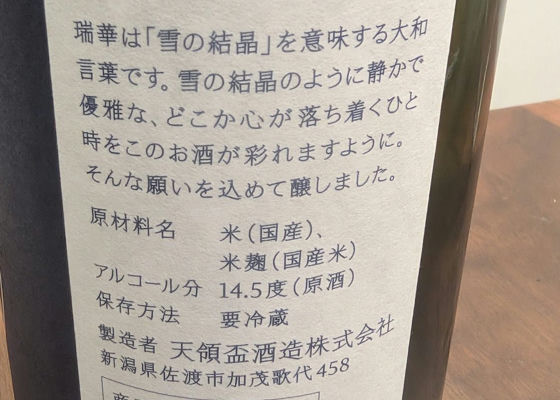 瑞華は「雪の結晶」を意味する大和
言葉です。雪の結晶のように静かで
優雅な、どこか心が落ち着くひと
時をこのお酒が彩れますように。
そんな願いを込めて醸しました。
原材料名 米（国産）、
米麹（国産米）
アルコール分 14.5度（原酒）
保存方法 要冷蔵
製造者 天領盃酒造株式会社
新潟県佐渡市加茂歌代458